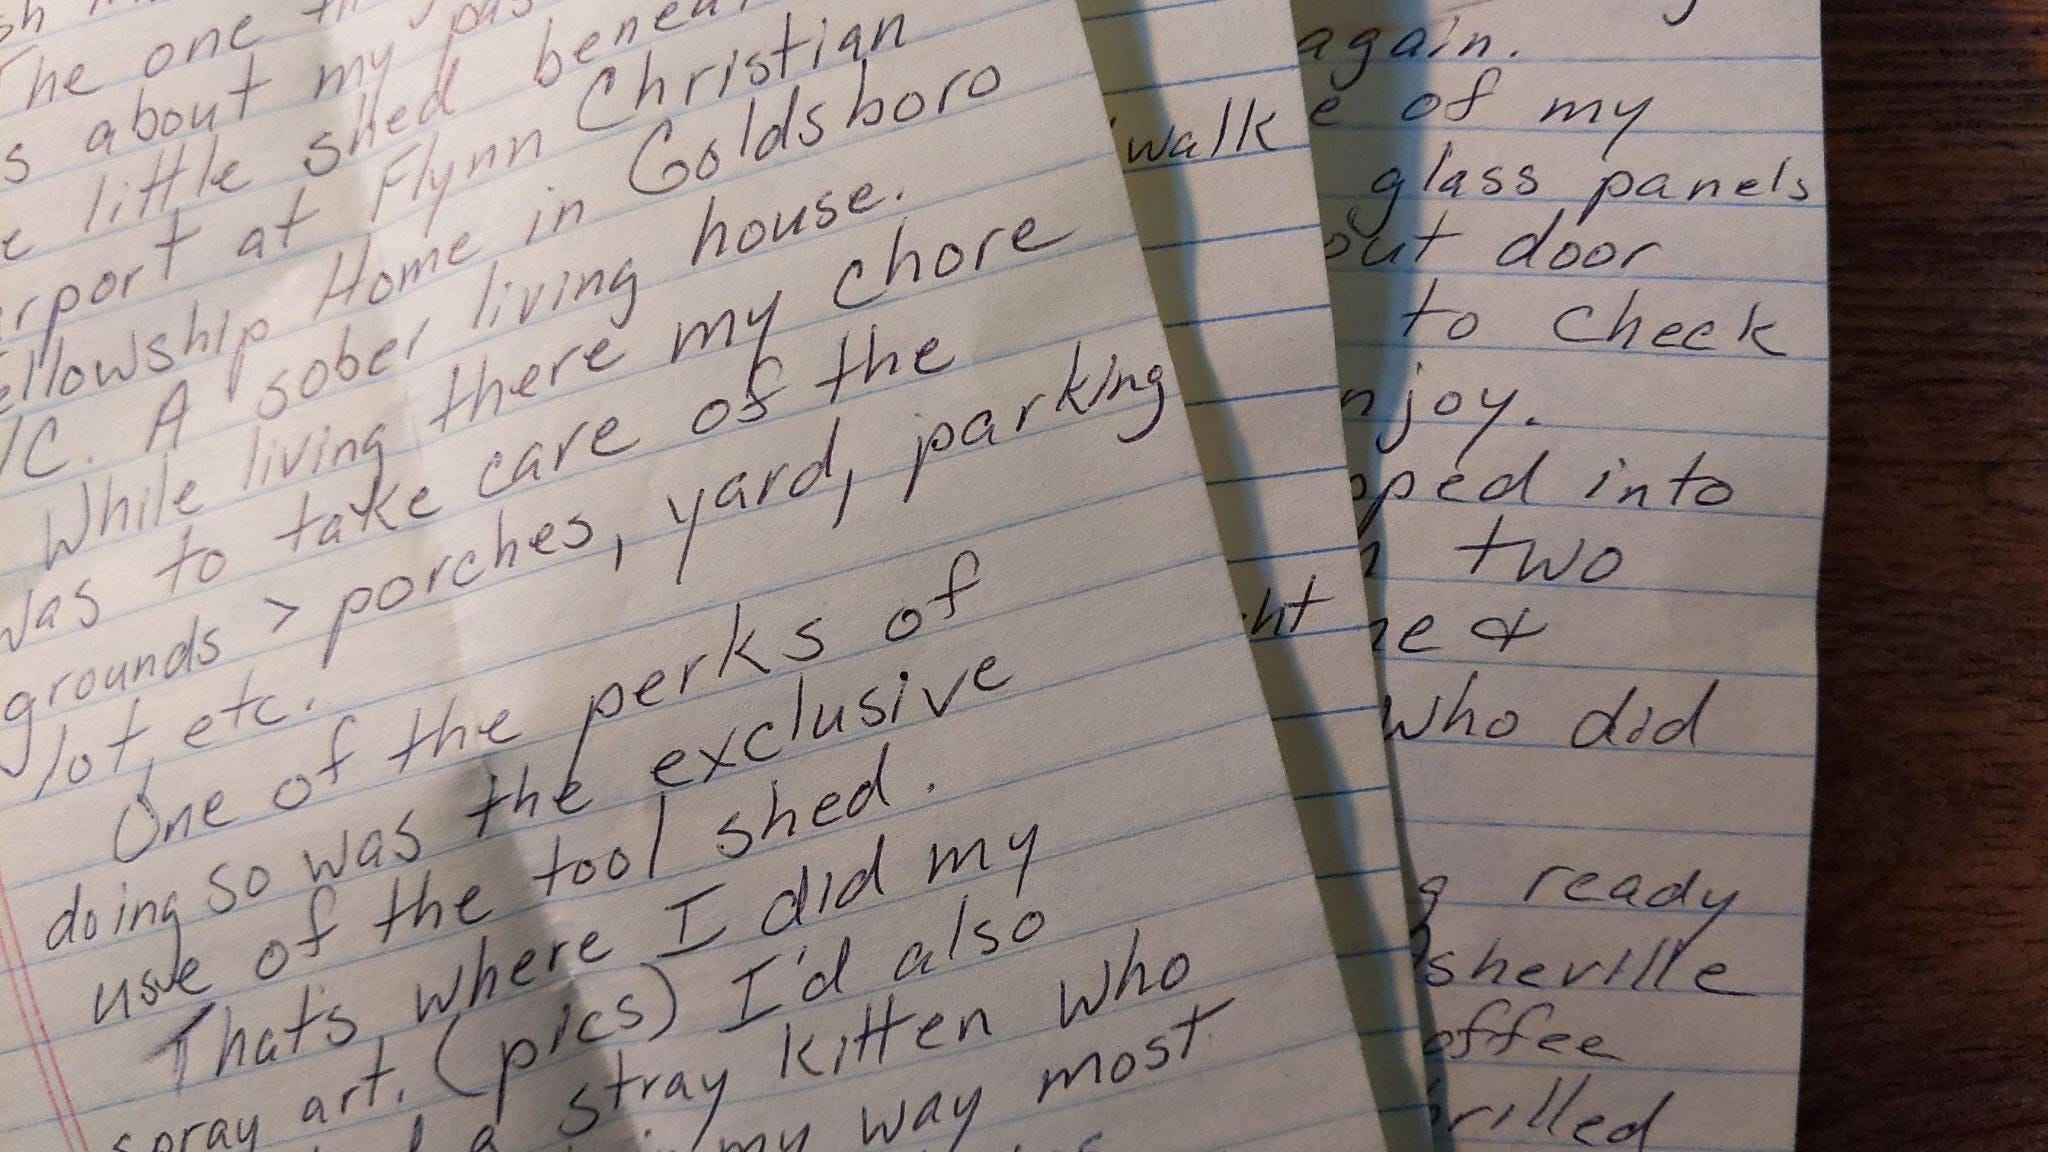 The one
s about my pas
e little shed benea
rport at Flynn Christian
ellowship Home in Goldsboro
IC. A sober living house.
While living there my chore
was to take care of the
grounds > porches, yard, parking
lot, etc.
One of the perks of
doing so was the exclusive
use of the tool shed.
That's where I did my
spray art. (pics) I'd also
a stray kitten who
my way most
walk
ht
again.
e of my
glass panels
out door
to check
njoy.
pped into
two
ne &
who did
g ready
Asheville
offee
hrilled